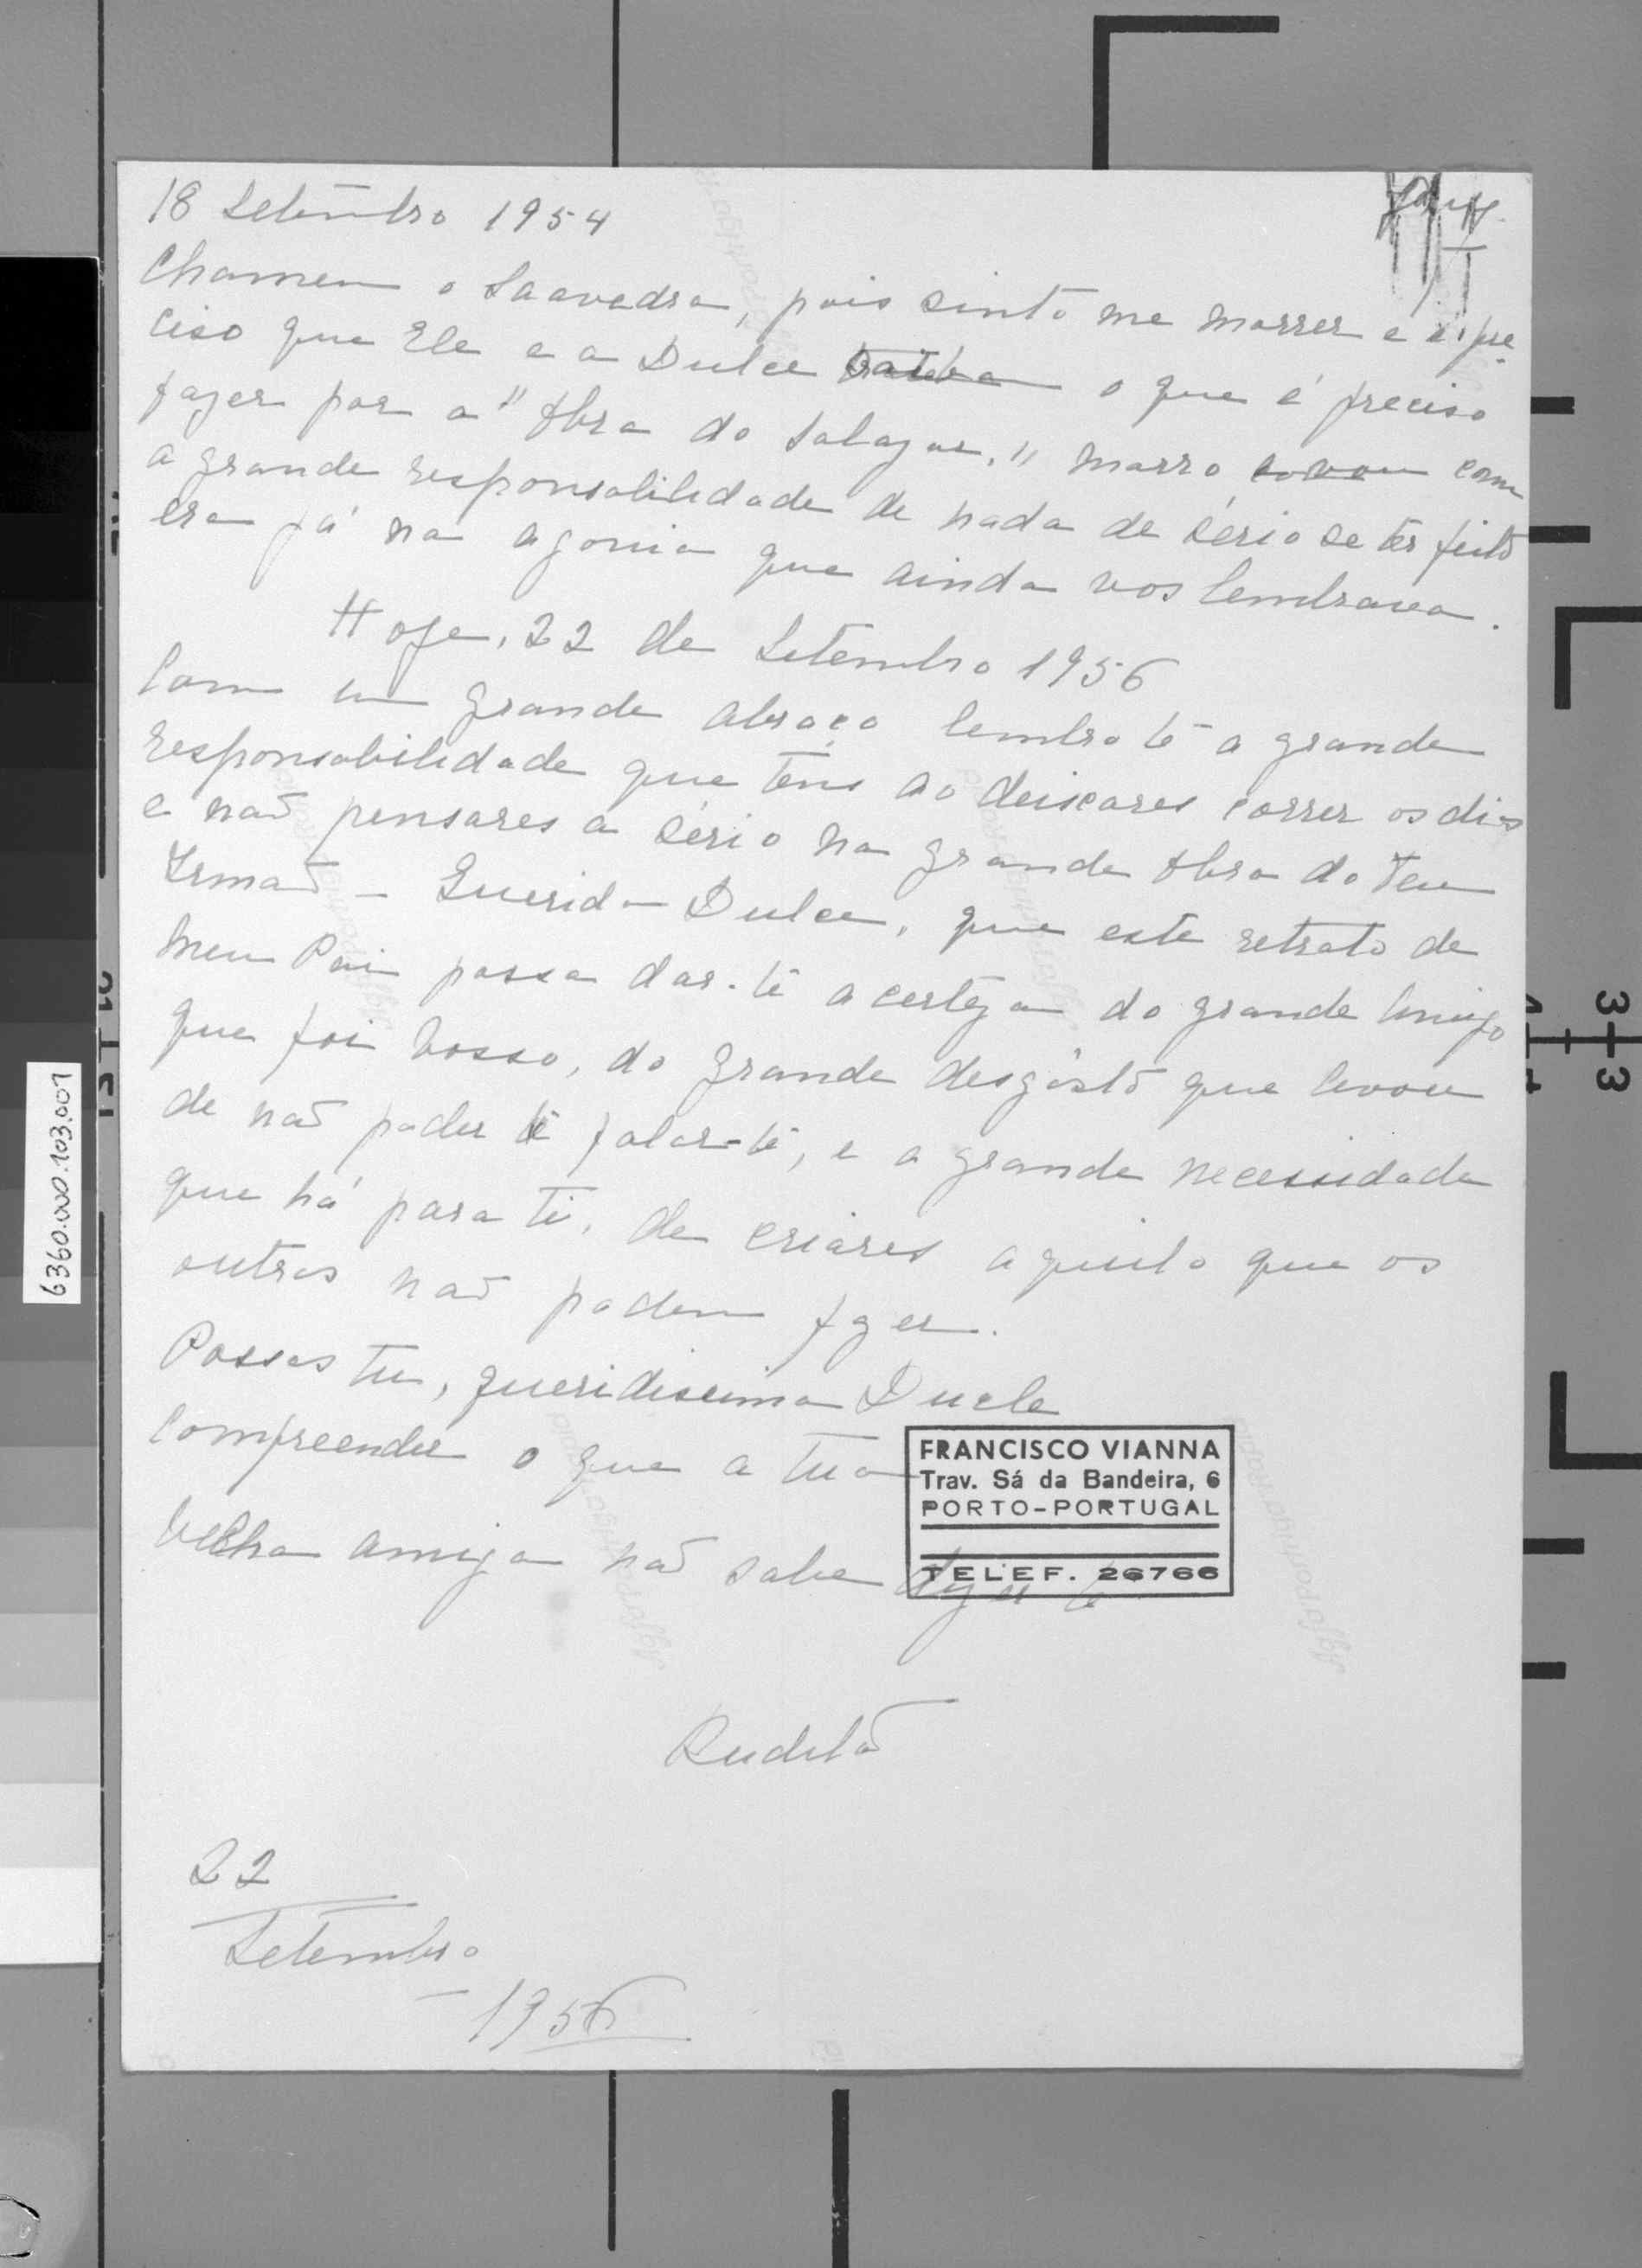 18 Setembro 1954
Chamem o Saavedra, pois sinto me morrer e é pre
ciso que Ele e a Dulce saiba o que é preciso
fazer por a "Obra do Salazar." Morro com
a grande responsabilidade de nada de sério se ter feito
era já na agonia que ainda vos lembrava.
Hoje, 22 de Setembro 1956
Com um grande abraço lembro te a grande
responsabilidade que tens ao deixares correr os dias
e não pensares a sério na grande Obra do teu
Irmão - Querida Dulce, que este retrato de
meu Pai possa dar-te a certeza do grande Amigo
que foi vosso, do grande desgôsto que levou
de não poder falar-te, e a grande necessidade
que há para ti, de criares aquilo que os
outros não podem fzer.
Possas tu, queridissima Ducle
compreender o que a tua
velha amiga não sabe dizer te
FRANCISCO VIANNA
Trav. Sá da Bandeira, 6
PORTO-PORTUGAL
TELEF. 26766
22
Setembro
- 1956
6360.000.103.001
3
3